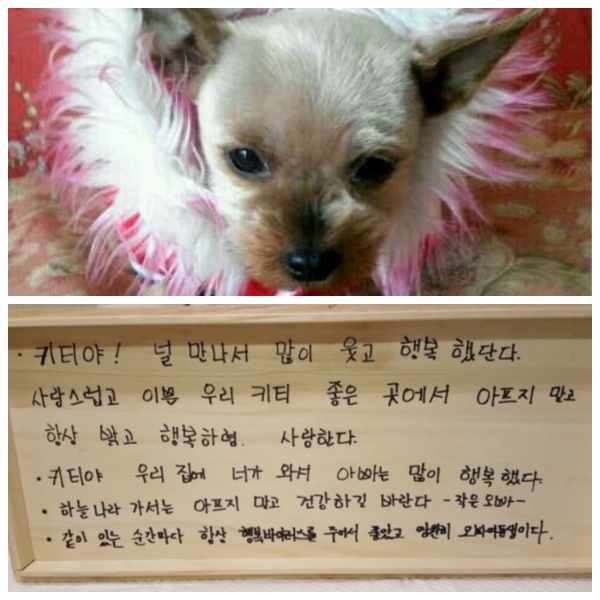 · 키티야! 널 만나서 많이 웃고 행복 했단다.
사랑스럽고 이쁜 우리 키티 좋은 곳에서 아프지 말고
항상 밝고 행복하렴. 사랑한다.
· 키티야 우리 집에 너가 와서 아빠는 많이 행복했다.
· 하늘나라 가서는 아프지 말고 건강하길 바란다 -작은오빠-
· 같이 있는 순간마다 항상 행복바이러스를 주어서 좋았고 영원히